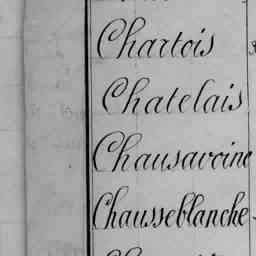 Chartois
Chatelais
Chausavoine
Chausseblanche